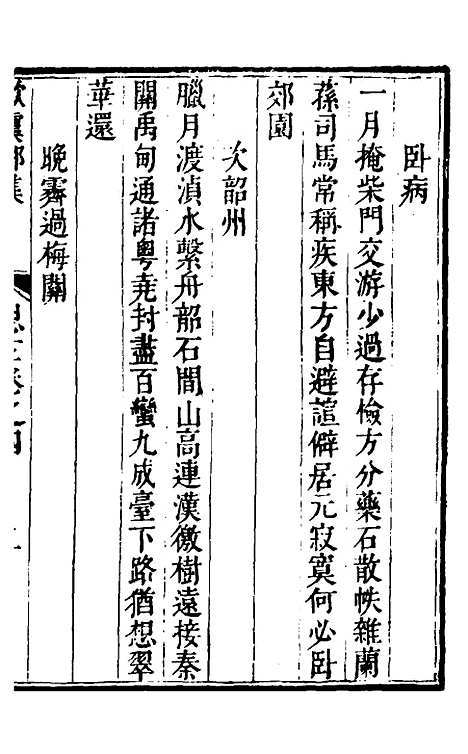 卧病
一月掩柴門交游少過存檢方分藥石散帙雜蘭
蓀司馬常稱疾東方自避諠僻居元寂寞何必卧
郊園
次韶州
臘月渡湞水繫舟韶石間山高連漢徼樹遠接秦
關禹甸通諸粤堯封盡百蠻九成臺下路猶想翠
華還
晚霽過梅關